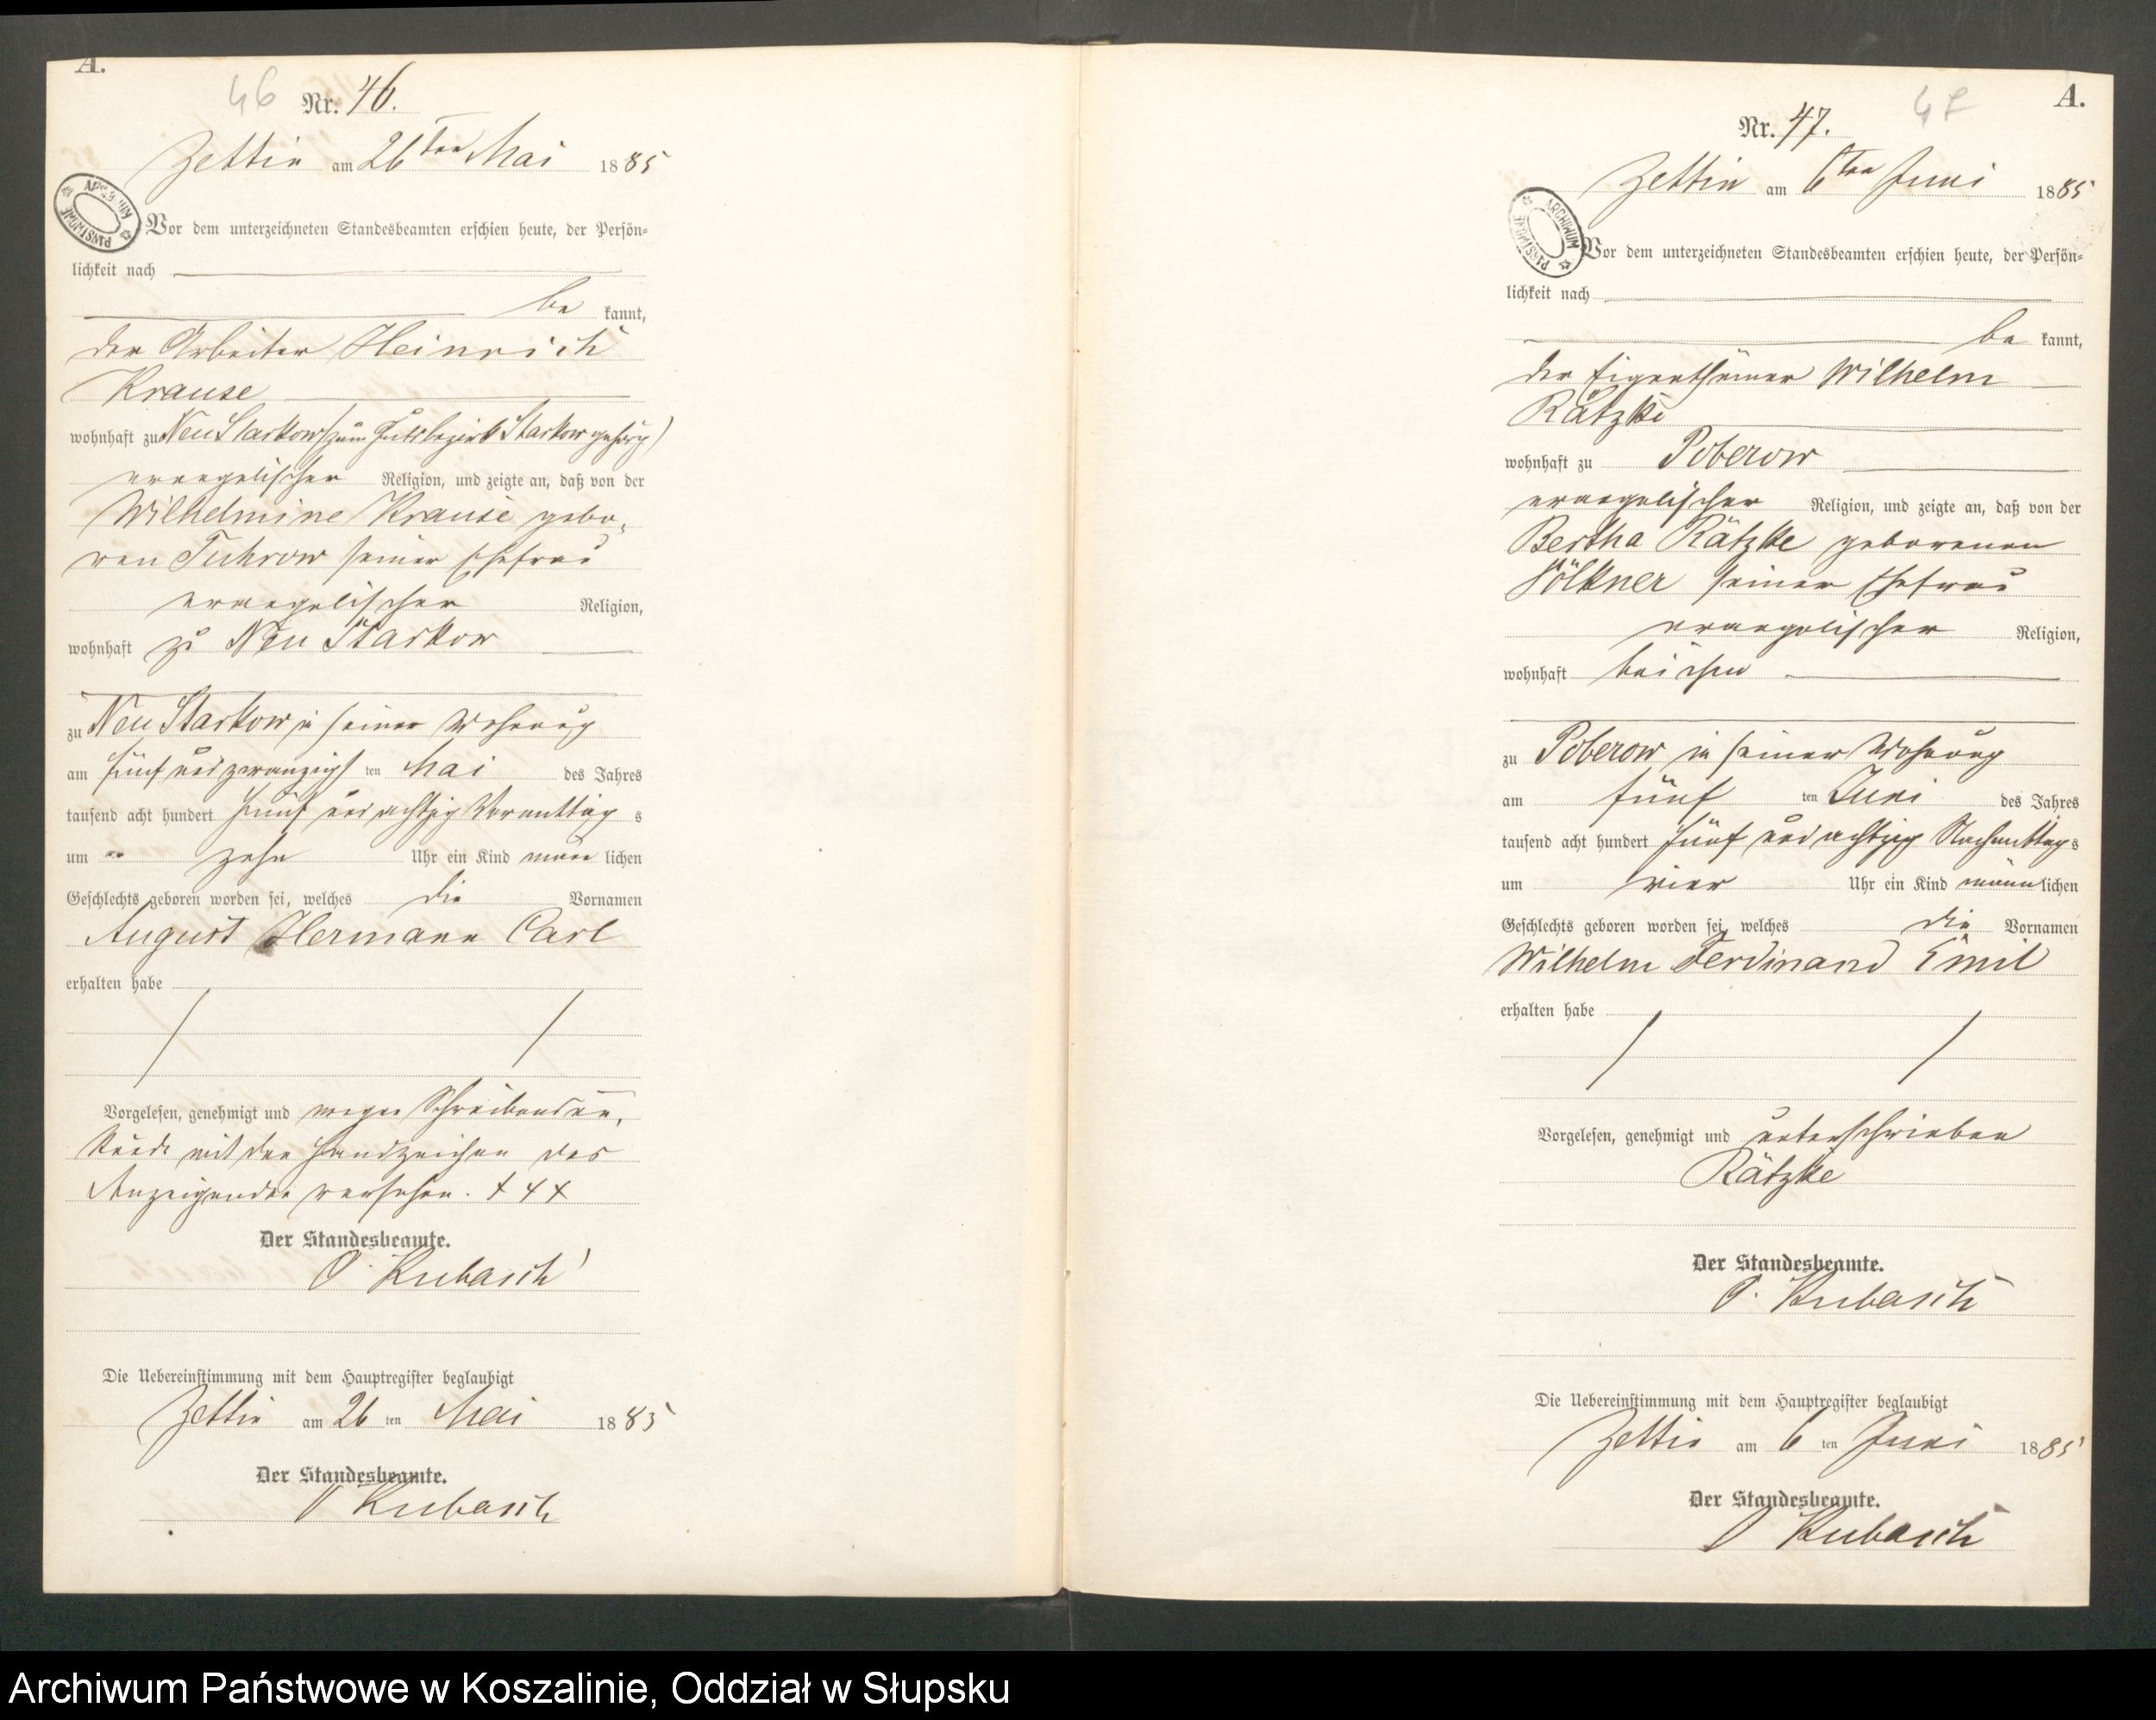 A.
46 Nr. 46.
Zettin am 26ten Mai 1885
Vor dem unterzeichneten Standesbeamten erschien heute, der Persön-
lichkeit nach
be kannt,
der Arbeiter Heinrich
Krause
wohnhaft zu Neu Starkow (zum Gutsbezirk Starkow gehörig)
evangelischer Religion, und zeigte an, daß von der
Wilhelmine Krause gebo-
ren Tuhrow seiner Ehefrau
evangelischer Religion,
wohnhaft zu Neu Starkow
zu Neu Starkow in seiner Wohnung
am fünf und zwanzigsten Mai des Jahres
tausend acht hundert fünf und achtzig Vormittags
um zehn Uhr ein Kind männlichen
Geschlechts geboren worden sei, welches die Vornamen
August Hermann Carl
erhalten habe
Vorgelesen, genehmigt und wegen Schreibensun-
kunde mit den Handzeichen des
Anzeigenden versehen. + + +
Der Standesbeamte.
Kubasch
Die Uebereinstimmung mit dem Hauptregister beglaubigt
Zettin am 26ten Mai 1885
Der Standesbeamte.
Kubasch
A.
Nr. 47. 47
Zettin am 6ten Juni 1885
Vor dem unterzeichneten Standesbeamten erschien heute, der Persön-
lichkeit nach
be kannt,
der Eigenthümer Wilhelm
Rätzke
wohnhaft zu Poberow
evangelischer Religion, und zeigte an, daß von der
Bertha Rätzke geborenen
Völkner seiner Ehefrau
evangelischer Religion,
wohnhaft bei ihm
zu Poberow in seiner Wohnung
am fünf ten Juni des Jahres
tausend acht hundert fünf und achtzig Nachmittags
um vier Uhr ein Kind männlichen
Geschlechts geboren worden sei, welches die Vornamen
Wilhelm Ferdinand Emil
erhalten habe
Vorgelesen, genehmigt und unterschrieben
Rätzke
Der Standesbeamte.
Kubasch
Die Uebereinstimmung mit dem Hauptregister beglaubigt
Zettin am 6ten Juni 1885
Der Standesbeamte.
Kubasch
ARCHIWUM PAŃSTWOWE
Archiwum Państwowe w Koszalinie, Oddział w Słupsku